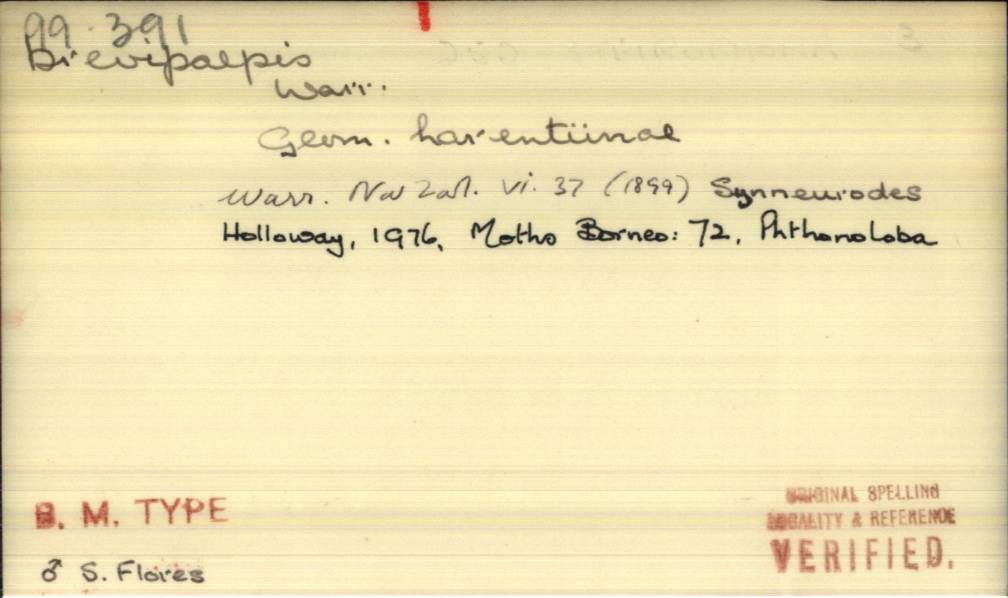 99.391
Brevipalpis
Warr.
Geom. Larentiinae
Warr. Nov Zool. vi. 37 (1899) Synneurodes
Holloway, 1976, Moths Borneo: 72, Phthonoloba
B. M. TYPE
♂ S. Flores
ORIGINAL SPELLING
LOCALITY & REFERENCE
VERIFIED.